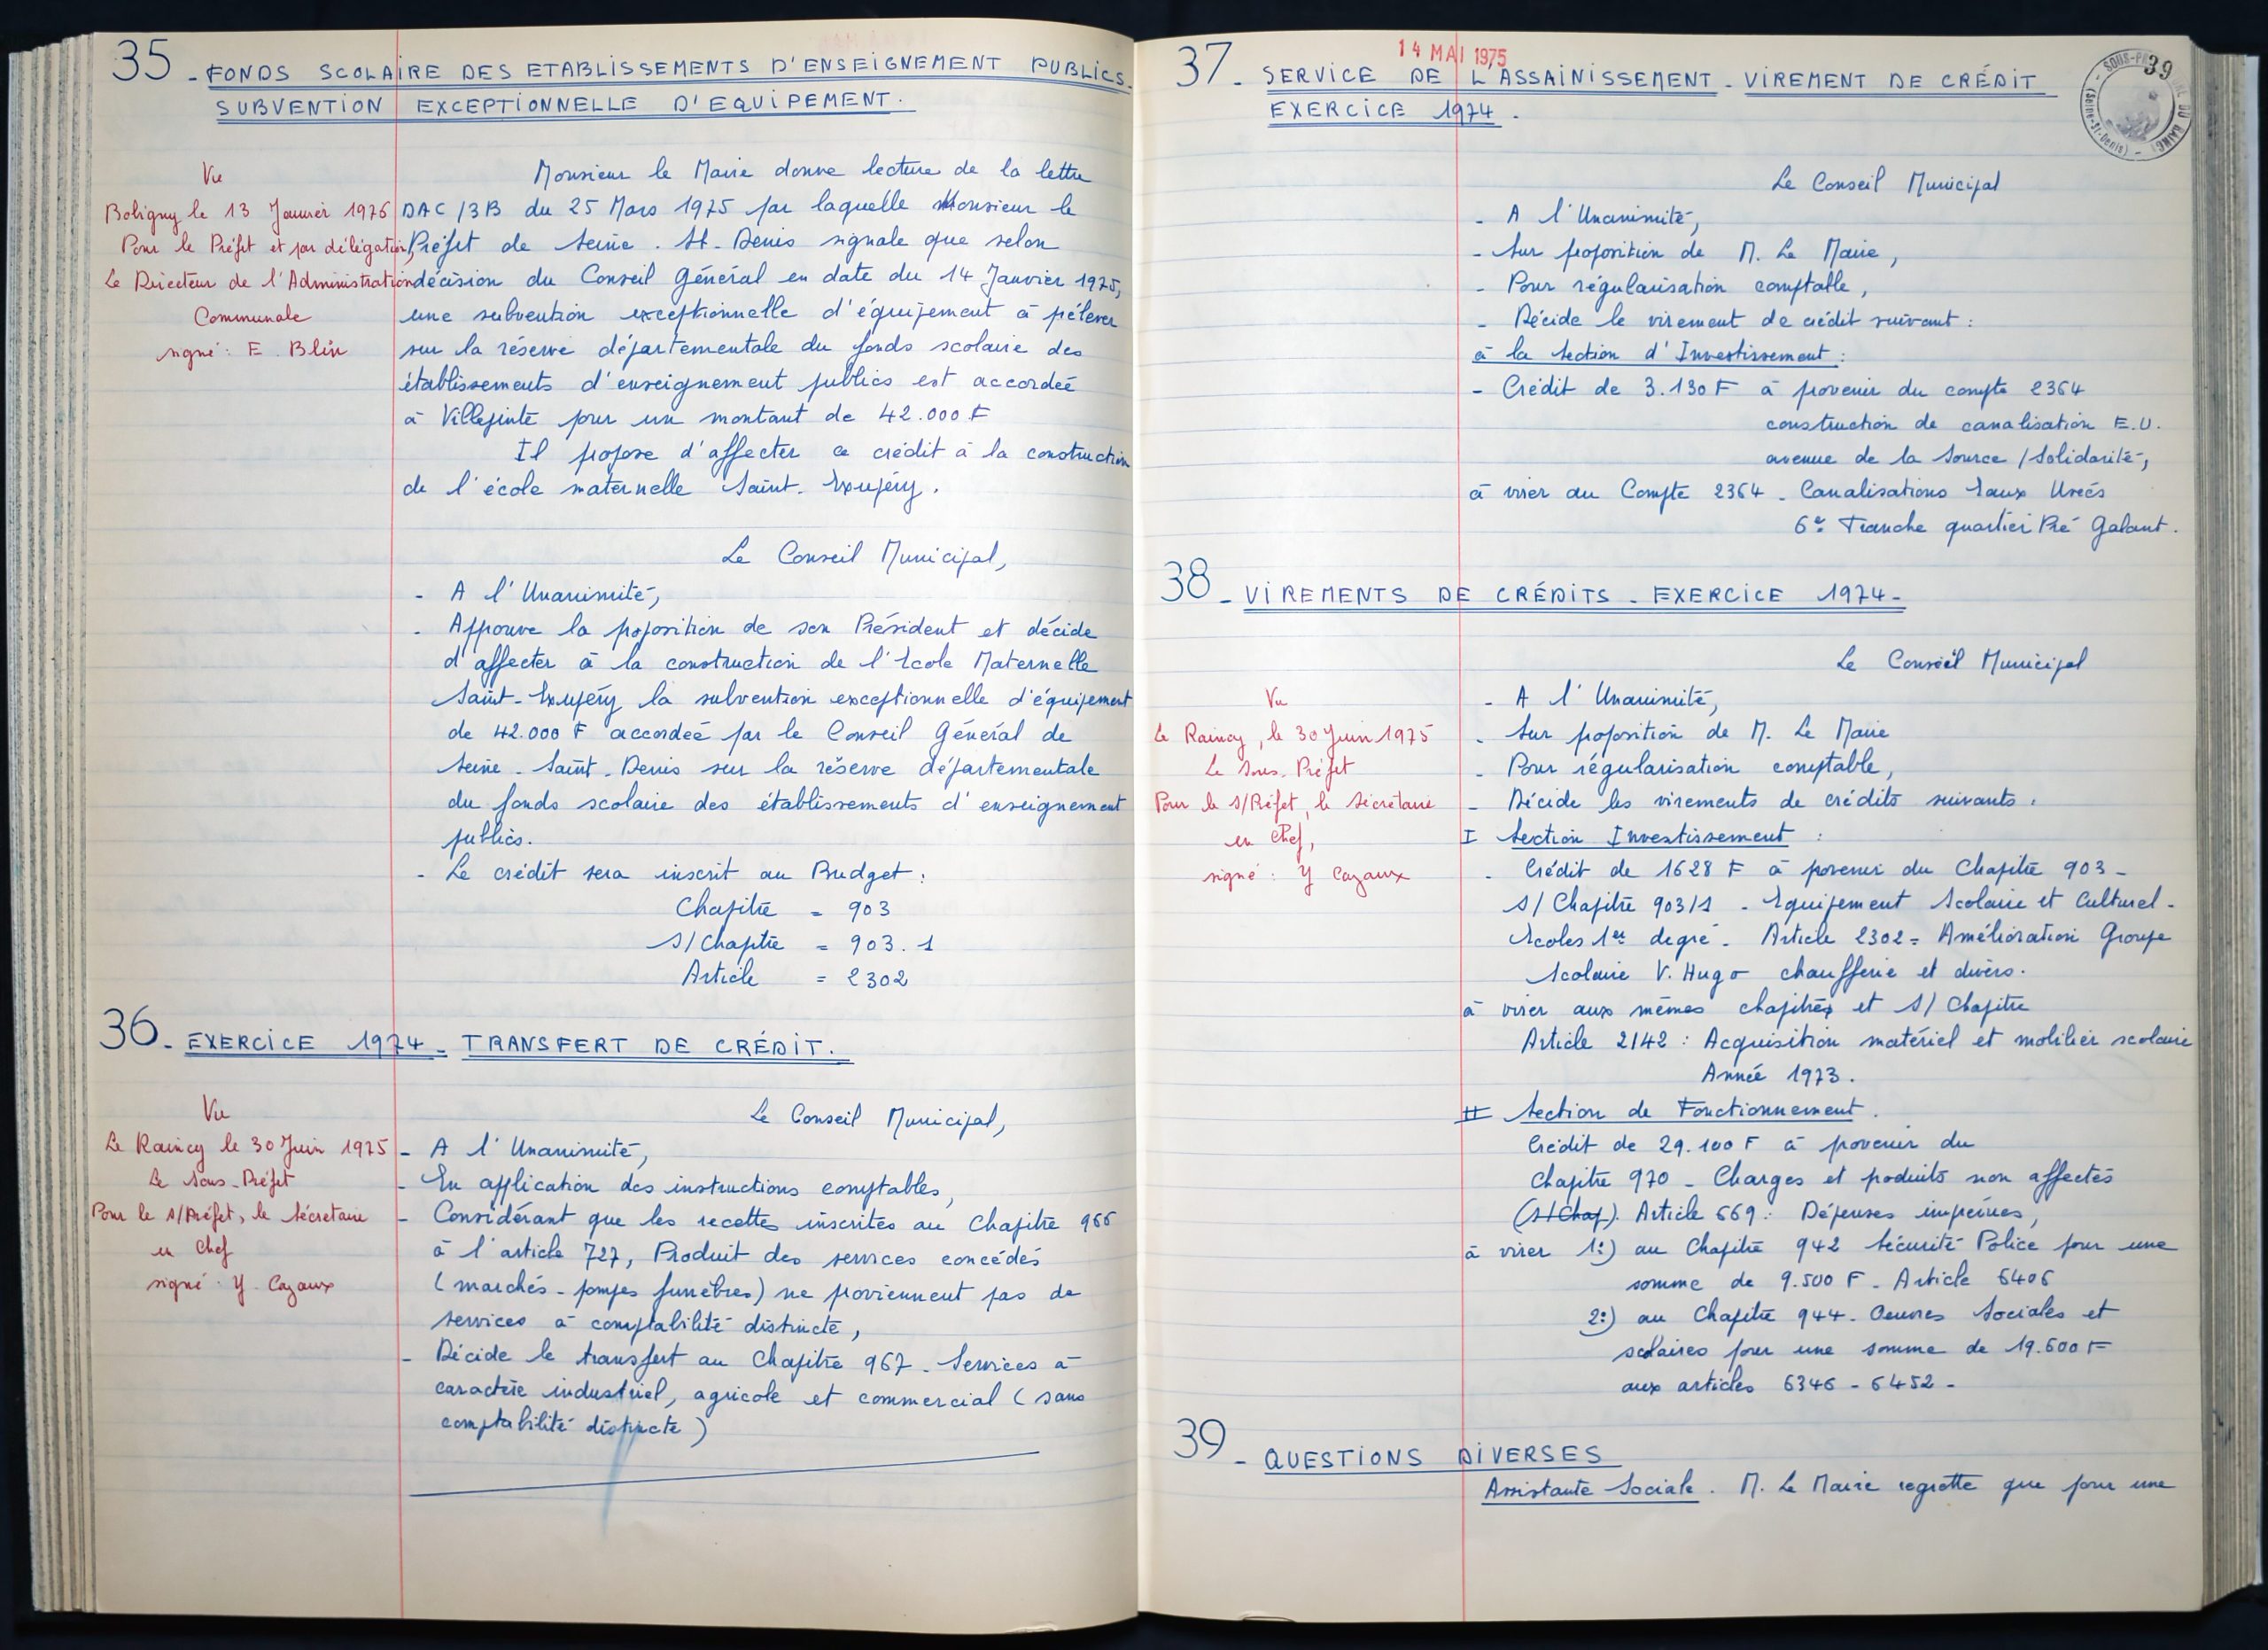 35 - FONDS SCOLAIRE DES ETABLISSEMENTS D'ENSEIGNEMENT PUBLICS.
SUBVENTION EXCEPTIONNELLE D'EQUIPEMENT.
Vu
Bobigny le 13 Janvier 1976
Pour le Préfet et par délégation,
Le Directeur de l'Administration
Communale
signé : E. Blin
Monsieur le Maire donne lecture de la lettre
DAC/3B du 25 Mars 1975 par laquelle Monsieur le
Préfet de Seine. St-Denis signale que selon
décision du Conseil Général en date du 14 Janvier 1975,
une subvention exceptionnelle d'équipement à prélever
sur la réserve départementale du fonds scolaire des
établissements d'enseignement publics est accordée
à Villepinte pour un montant de 42.000 F
Il propose d'affecter ce crédit à la construction
de l'école maternelle Saint-Exupéry.
Le Conseil Municipal,
- A l'Unanimité,
- Approuve la proposition de son Président et décide
d'affecter à la construction de l'Ecole Maternelle
Saint-Exupéry la subvention exceptionnelle d'équipement
de 42.000 F accordée par le Conseil Général de
Seine-Saint-Denis sur la réserve départementale
du fonds scolaire des établissements d'enseignement
publics.
- Le crédit sera inscrit au Budget :
Chapitre = 903
S/Chapitre = 903.1
Article = 2302
36 - EXERCICE 1974 - TRANSFERT DE CRÉDIT.
Vu
Le Raincy le 30 Juin 1975
Le Sous-Préfet
Pour le S/Préfet, le Sécretaire
en Chef
signé : Y. Cazaux
Le Conseil Municipal,
- A l'Unanimité,
- En application des instructions comptables,
- Considérant que les recettes inscrites au Chapitre 966
à l'article 727, Produit des services concédés
(marchés - pompes funèbres) ne proviennent pas de
services à comptabilité distincte,
- Décide le transfert au Chapitre 967 - Services à
caractère industriel, agricole et commercial (sans
comptabilité distincte)
14 MAI 1975
39
SOUS-PRÉFECTURE DU RAINCY
(Seine-St-Denis)
37 - SERVICE DE L'ASSAINISSEMENT - VIREMENT DE CRÉDIT
EXERCICE 1974.
Le Conseil Municipal
- A l'Unanimité,
- Sur proposition de M. Le Maire,
- Pour régularisation comptable,
- Décide le virement de crédit suivant :
à la Section d'Investissement :
- Crédit de 3.130 F à provenir du compte 2364
construction de canalisation E.U.
avenue de la Source / Solidarité,
à virer au Compte 2364 - Canalisations Eaux Usées
6e Tranche quartier Pré Galant.
38 - VIREMENTS DE CRÉDITS - EXERCICE 1974 -
Vu
Le Raincy, le 30 Juin 1975
Le Sous-Préfet
Pour le S/Préfet, le Sécrétaire
en Chef,
signé : Y Cazaux
Le Conseil Municipal
- A l'Unanimité,
- Sur proposition de M. Le Maire
- Pour régularisation comptable,
- Décide les virements de crédits suivants :
I Section Investissement :
- Crédit de 1628 F à provenir du Chapitre 903 -
S/Chapitre 903/1 - Equipement Scolaire et Culturel -
Ecoles 1er degré - Article 2302 = Amélioration Groupe
Scolaire V. Hugo chaufferie et divers.
à virer aux mêmes chapitres et S/Chapitre
Article 2142 : Acquisition matériel et mobilier scolaire
Année 1973.
II Section de Fonctionnement.
Crédit de 29.100 F à provenir du
Chapitre 970 - Charges et produits non affectés
(S/Chap). Article 669 : Dépenses imprévues,
à virer 1:) au Chapitre 942 Sécurité Police pour une
somme de 9.500 F - Article 6406
2:) au Chapitre 944 - Oeuvres Sociales et
scolaires pour une somme de 19.600 F
aux articles 6346 - 6452 -
39 - QUESTIONS DIVERSES
Assistante Sociale. M. Le Maire regrette que pour une